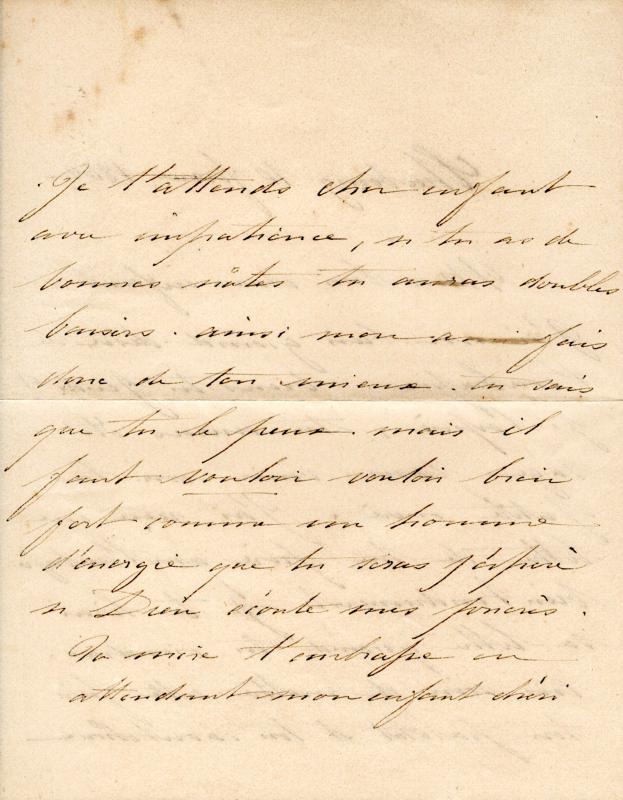 Je t'attends cher enfant
avec impatience, si tu as de
bonnes nôtes tu auras doubles
baisers. ainsi mon ami fais
donc de ton mieux. tu sais
que tu le peux. mais il
faut vouloir vouloir bien
fort comme un homme
d'énergie que tu seras j'éspère
si Dieu écoute mes prières.
Ta mère t'embrasse en
attendant mon enfant chéri